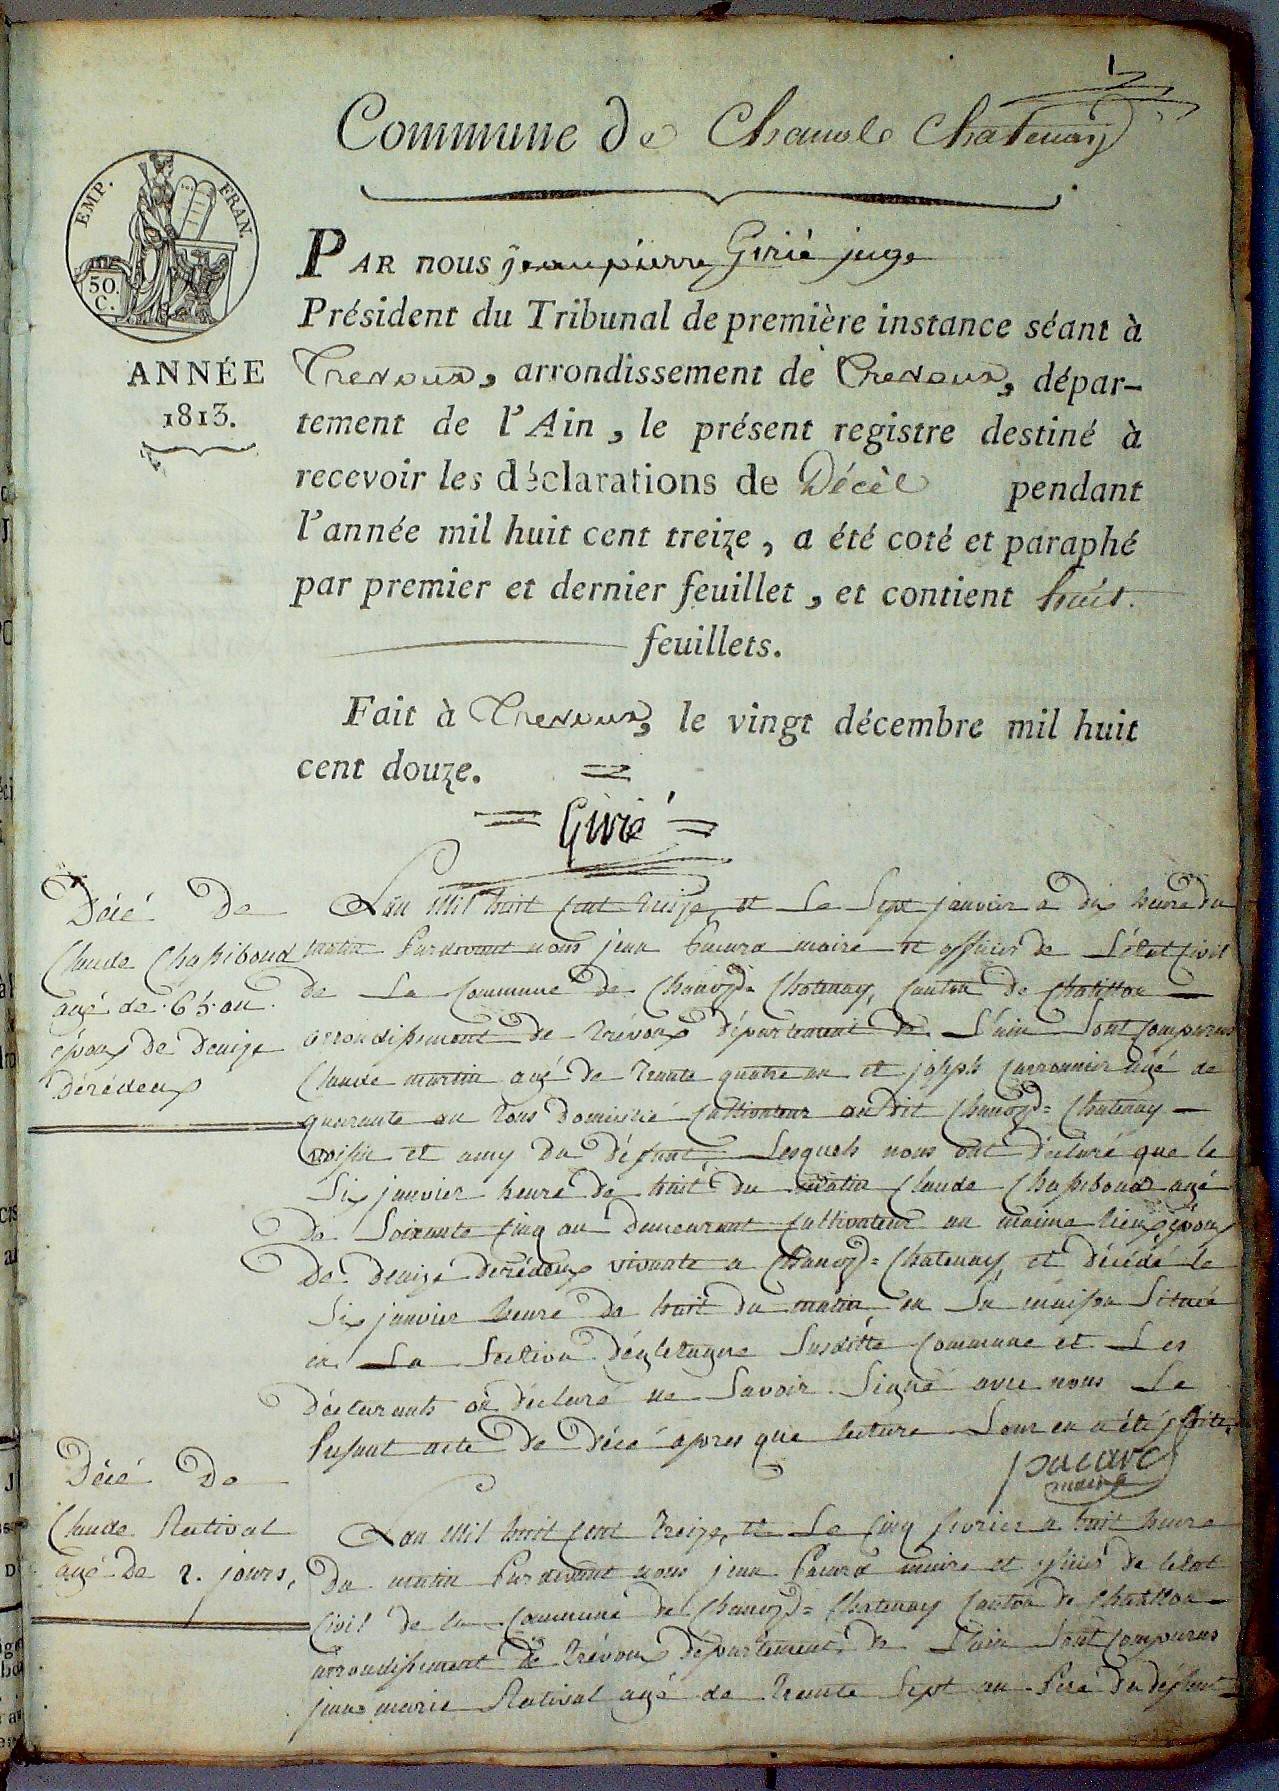 1
Commune de Chanoz Chatenay
EMP. FRAN.
50.
C.
ANNÉE
1813.
PAR nous jean pierre Girié juge
Président du Tribunal de première instance séant à
Trevoux, arrondissement de Trevoux, dépar-
tement de l'Ain, le présent registre destiné à
recevoir les déclarations de Décès pendant
l'année mil huit cent treize, a été coté et paraphé
par premier et dernier feuillet, et contient huit
feuillets.
Fait à Trevoux, le vingt décembre mil huit
cent douze.
Girié
Décé De
Claude Chapiboud
agé de 65 an
époux de Denize
Dérédeux
Lan Mil huit cent treize, et Le Sept janvier a dix heure du
matin Pardevant nous jean Pacard maire et officier de L'état Civil
de La Commune de Chanoz = Chatenay, Canton de Chatillon
arrondissement de trévoux département de L'ain Sont comparus
Claude martin agé de trente quatre an et joseph Carronnier agé de
quarante an tous domicilié Cultivateur au dit Chanoz = Chatenay
voisin et amy du défunt, Lesquels nous ont déclaré que le
Six janvier heure de huit du matin Claude Chapiboud agé
De Soixante Cinq an demeurant Cultivateur au maime lieu époux
De denize derédeux vivante a Chanoz = Chatenay, et décédé le
Six janvier heure de huit du matin en Sa maison Située
en La Section Susditte Commune et Les
déclarants on déclaré ne Savoir Signé avec nous Le
Présent acte de décé apres que lecture Leur en a été faite
pacard
maire
Décé De
Claude Rativat
agé De 2. jours,
Lan Mil huit cent treize, et Le Cinq fevrier a huit heure
du matin Pardevant nous jean Pacard maire et officié de létat
Civil de la Commune de Chanoz = Chatenay Canton de Chatillon
arrondissement de trévoux département de L'ain Sont comparus
jean marie Rativat agé de trente Sept an Pere du défunt